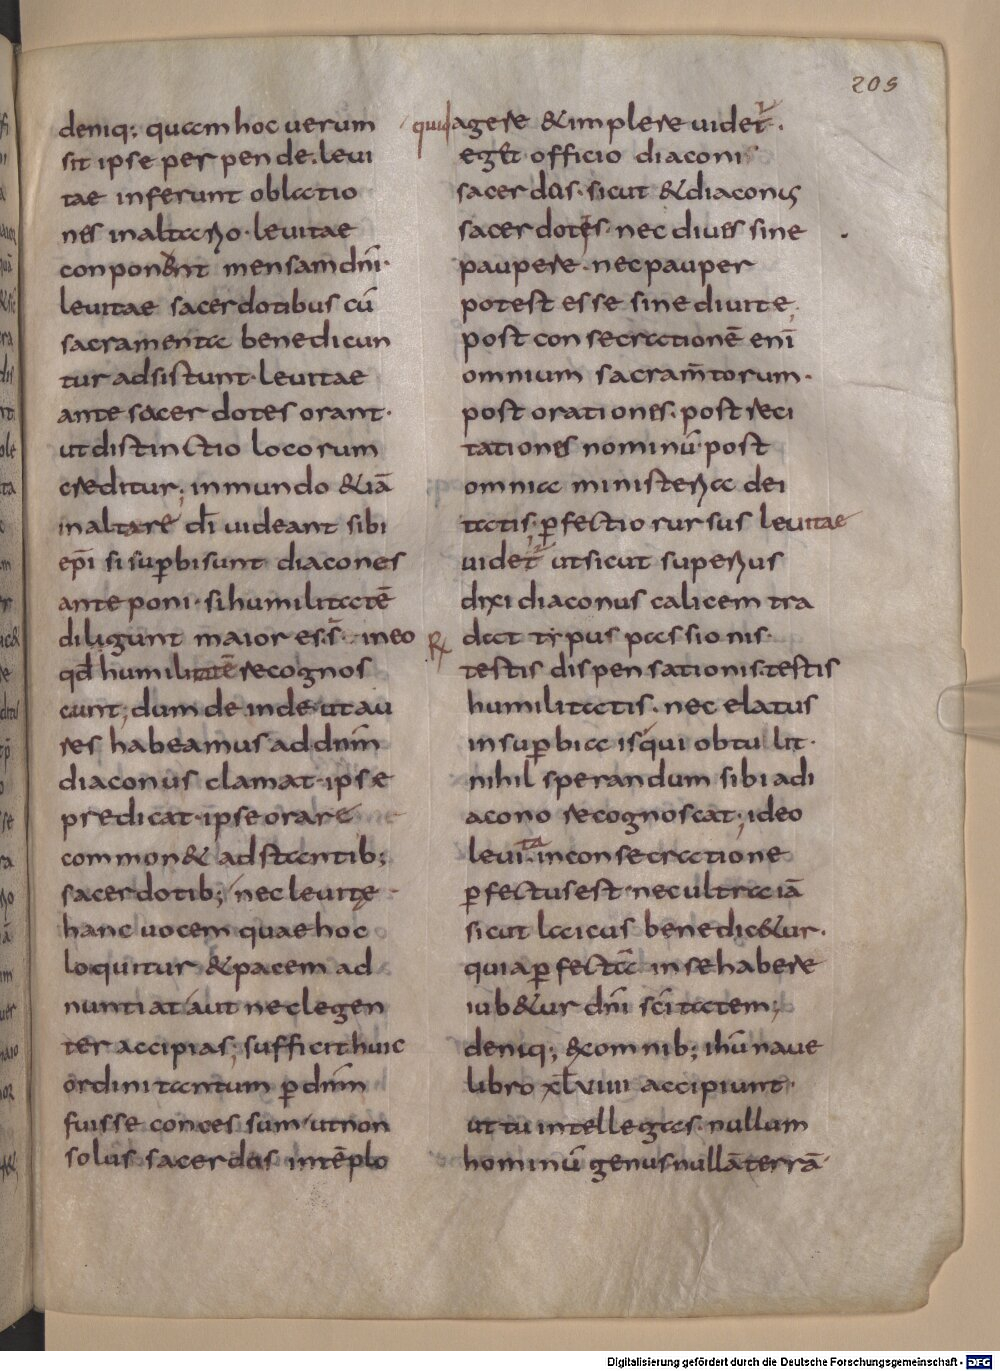 205
deniq; quam hoc uerum
sit ipse per pende. leui
tae inferunt oblatio
nes in altario. leuitae
conponunt mensam dñi.
leuitae sacerdotibus cū
sacramenta benedicun
tur adsistunt. leuitae
ante sacerdotes orant.
ut distinctio locorum
creditur; in mundo &iā
in altare dī uideant sibi
ep̄i si sup̱bi sunt diacones
ante poni. si humilitatē
diligunt maior es s̄. in eo
qđ humilitatē recognos
cunt; dum deinde ut au
res habeamus ad dn̄m
diaconus clamat. ipse
predicat. ipse orare
common& ad stantib;
sacerdotib; nec leuite
hanc uocem quae hoc
loquitur &pacem ad
nuntiat aut neclegen
ter accipias; sufficit huic
ordini tantum p̱ dn̄m
fuisse concessum ut non
solus sacerdas in tēplo
quid agere &implere uidet̄.
eg&t officio diaconi
sacerdus. sicut &diaconis
sacerdotes. nec diues sine
paupere. nec pauper
potest esse sine diuite;
post consecrationē enī
omnium sacram̄torum.
post orationes. post reci
tationes nominū post
omnia ministeria dei
tactis; p̱fectio rursus leuitae
uidet̄ ut sicut superius
dixi diaconus calicem tra
R dat typus passionis.
testis dispensationis. testis
humilitatis. nec elatus
in sup̱bia is qui obtulit.
nihil sperandum sibi a di
acono recognoscat; ideo
leuita. in consecratione
p̱fectus est nec ultra iā
sicut laicus benedic&ur.
quia p̱fectā in se habere
iub&ur dn̄i sc̄itatem;
deniq; &com nib; ih̄u naue
libro xl̄viiii accipiunt.
ut tu intellegas. nullum
hominū genus nullā terrā
Digitalisierung gefördert durch die Deutsche Forschungsgemeinschaft - DFG